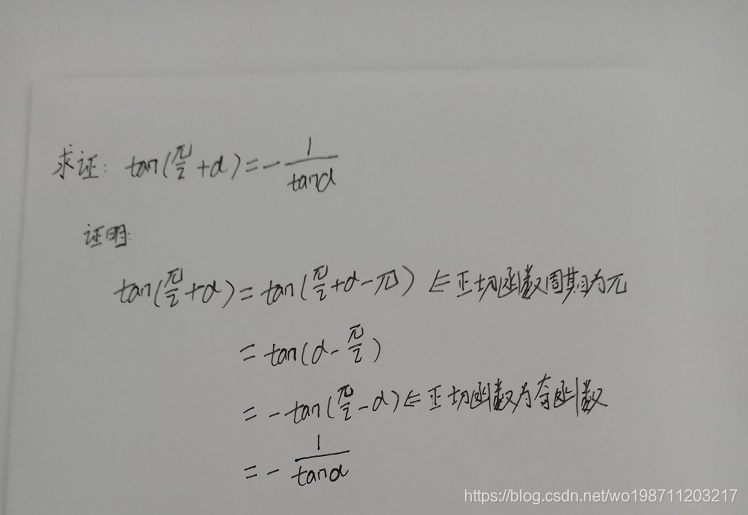 求证: tan(π/2+α)=-1/tanα
证明:
tan(π/2+α)=tan(π/2+α-π) ⇐正切函数周期为π
=tan(α-π/2)
=-tan(π/2-α)⇐正切函数为奇函数
=-1/tanα
https://blog.csdn.net/wo198711203217